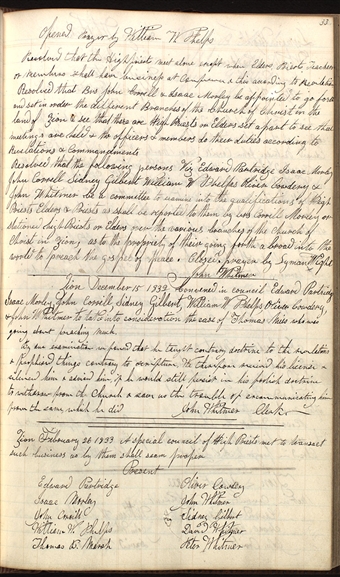 33
Opened Prayer by William W. Phelps
Resolved that the High priest meet alone except when Elders Priests Teachers
or Members shall have business at Conference & this according to Revelation
Resolved that Bros John Corrill & Isaac Morley be appointed to go forth
and set in order the different Branches of the Church of Christ in the
land of Zion & see that there are High Priests or Elders set apart to see that
meetings are held & the officers & members do their duties according to
Revelations & Commandments
Resolved that the following persons Viz Edward Partridge Isaac Morley
John Corrill Sidney Gilbert William W Phelps Oliver Cowdery &
John Whitmer be a committee to examine into the qualifications of High
Priests Elders & Priests as shall be reported to them by bros Corrill Morley or
stationed High Priests or Elders over the various branches of the Church of
Christ in Zion, as to the propriety of their going forth abroad into the
world to preach the gospel of peace. Closed prayer by Lyman Wight
John Whitmer
Zion December 15 1832 Convened in council Edward Partridge
Isaac Morley John Corrill, Sidney Gilbert, William W Phelps Oliver Cowdery,
& John Whitmer to take into consideration the case of Thomas who was
going about preaching much.
By our examination we found that he taught contrary doctrine to the revelations
& prophesied things contrary to scripture. We therefore his license &
silenced him & advised him, if he would still persist in his foolish doctrine
to withdraw from the Church & save us the trouble of excommunicating him
from the same, which he did John Whitmer Clerk
Zion February 26 1833 A special council of High Priests met to transact
such business as by them shall seem proper
Present
Edward Partridge Oliver Cowdery
Isaac Morley John Whitmer
John Corrill Sidney Gilbert
William W. Phelps David Whitmer
Thomas B. Marsh Peter Whitmer